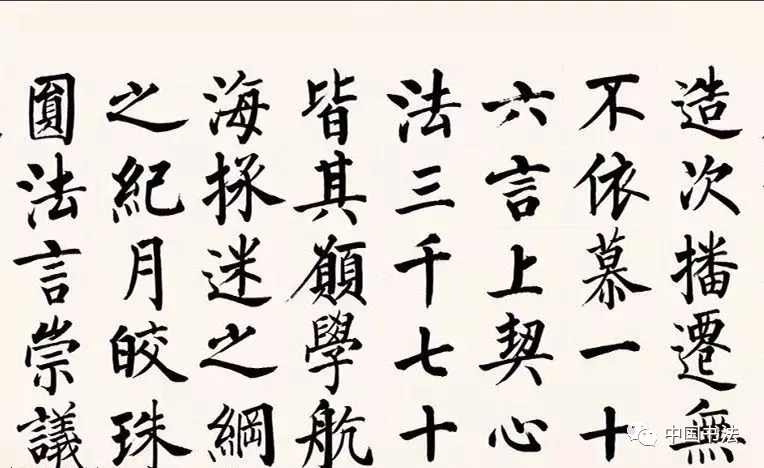 造次播遷無
不依慕一十
六言上契心
法三千七十
皆其願學航
海拯迷之綱
之紀月皎珠
圓法言崇議
中国书法